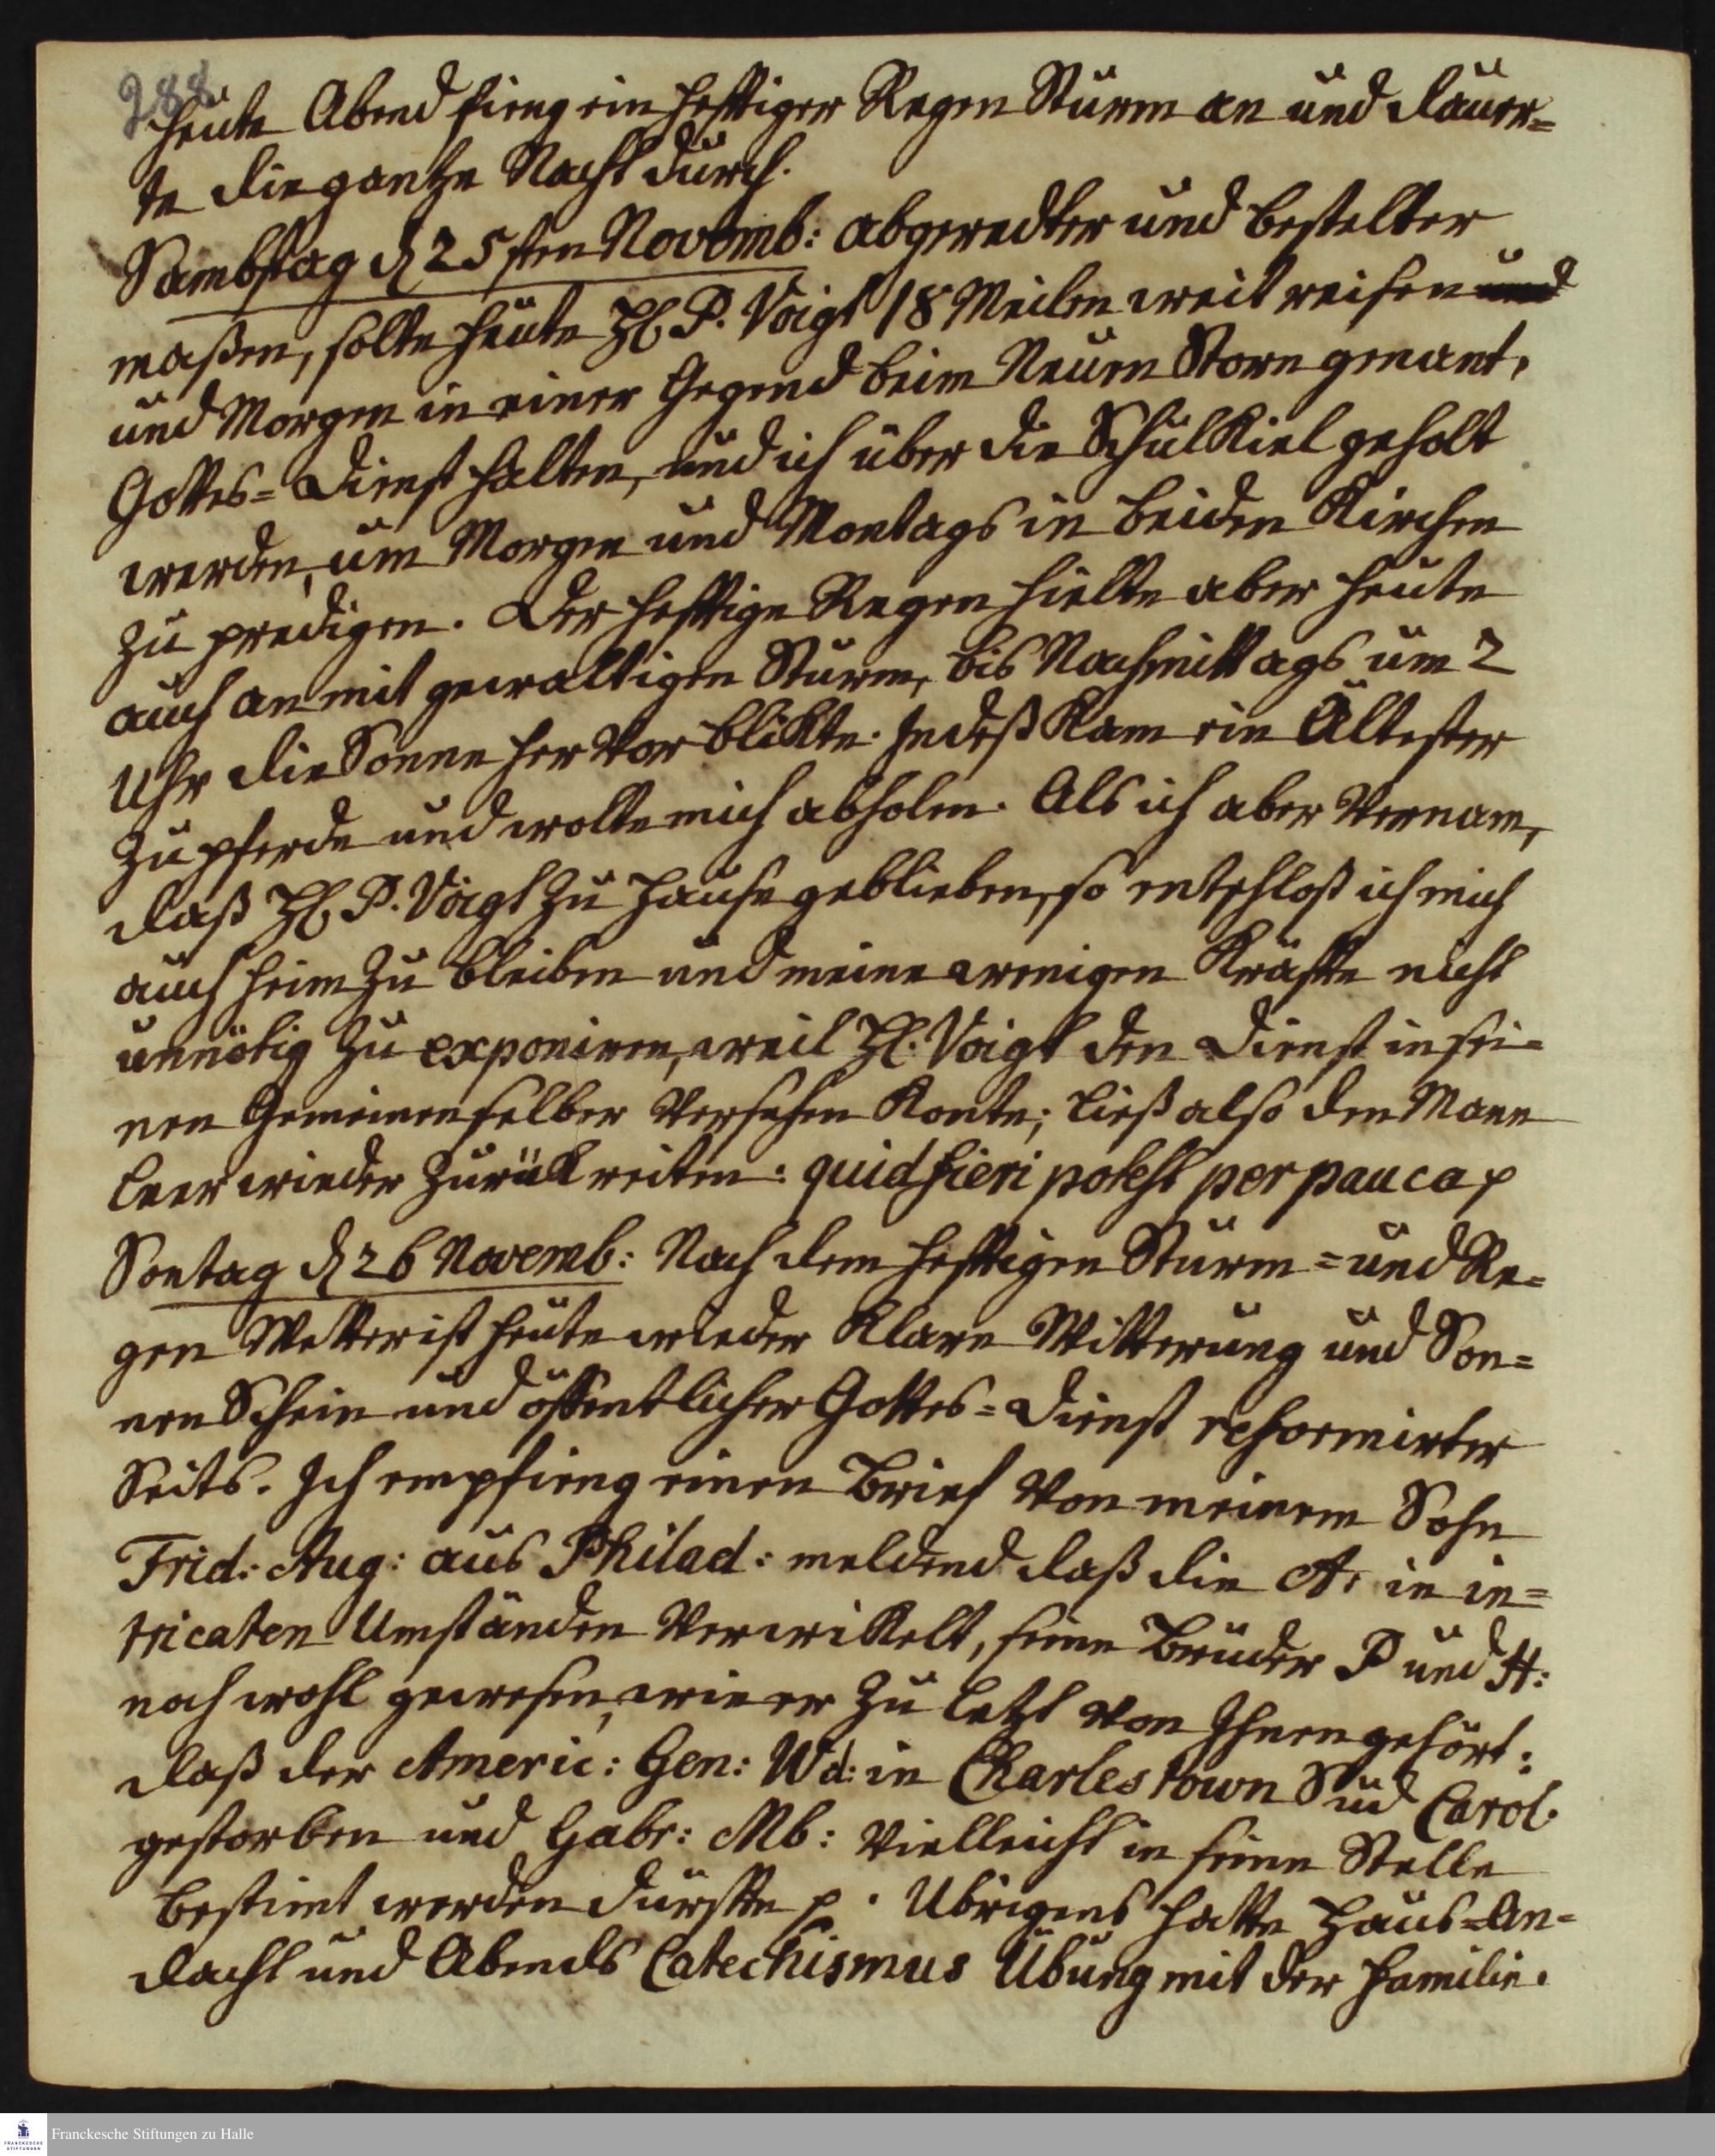 288
heute Abend fieng ein heftiger Regen Sturm an und dauer=
te die gantze Nacht durch.
Sambstag d 25sten Novemb: abgeredter und bestelter
maßen, solte heute HE P. Voigt 18 Meilen weit reisen und
und Morgen in einer Gegend beim Neuen Storn genant,
Gottes=Dienst halten, und ich über die Schulkiel geholt
werden, um Morgen und Montags in beiden Kirchen
zu predigen. Der heftige Regen hielte aber heute
auch an mit gewaltigen Sturm, bis Nachmittags um 2
Uhr die Sonne hervor blikte. Indeß kam ein Ältester
zu pferde und wolte mich abholen. Als ich aber vernam,
daß HE P. Voigt zu Hause geblieben, so entschloß ich mich
auch heim zu bleiben und meine wenigen Kräfte nicht
unnötig zu exponiren, weil HE. Voigt den Dienst in sei=
nen Gemeinen selber versehen konte; ließ also den Mann
leer wieder zurük reiten: quid fieri potest per pauca p
Sontag d 26 Novemb: Nach dem heftigen Sturm= und Re=
gen Wetter ist heute wieder klare Witterung und Son=
nen Schein und öffentlicher Gottes=Dienst reformirter
Seits. Ich empfieng einen Brief von meinem Sohn
Frid: Aug: aus Philad: meldend daß die A: in in=
tricaten Umständen verwikelt, seine Brüder P und H:
noch wohl gewesen, wie er zu letzt von Ihnen gehört:
daß der Americ: Gen: Wd: in Charlestown Süd Carol.
gestorben und Gabr: Mb: vielleicht in seine Stelle
bestimt werden dürfte p. Übrigens hatte Haus=An=
dacht und Abends Catechismus Übung mit der Familie.
Franckesche Stiftungen zu Halle